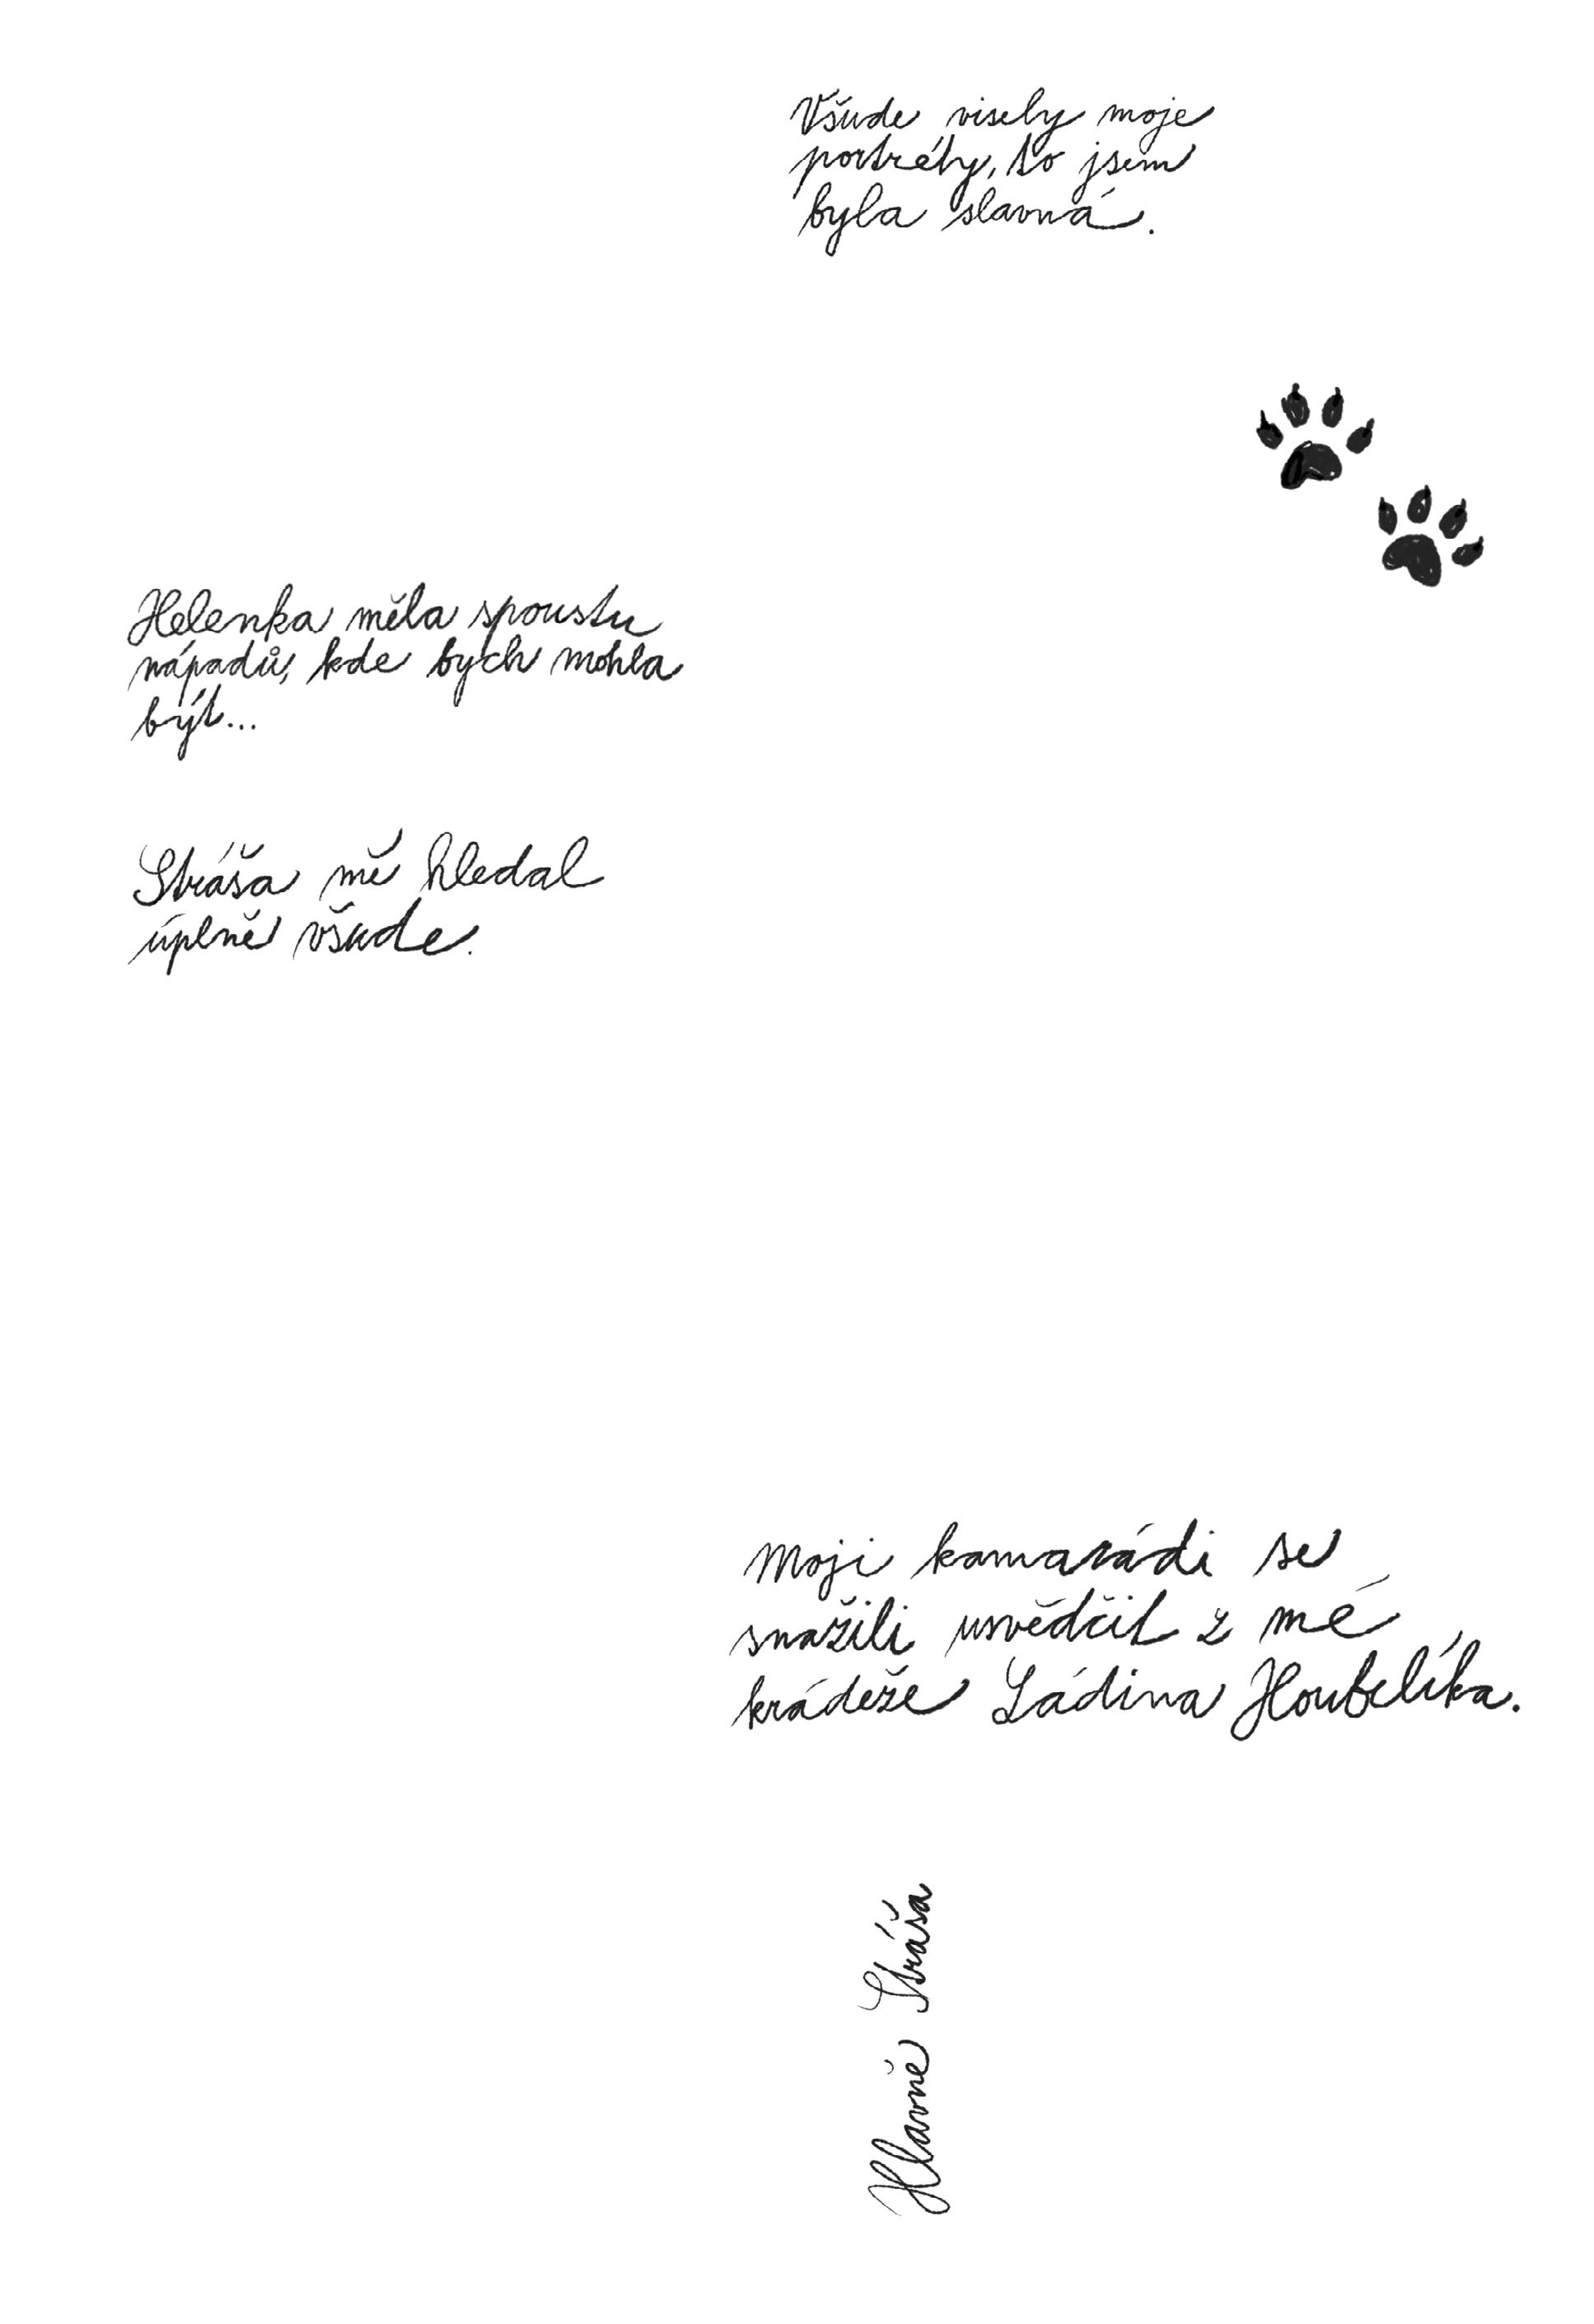 Všude visely moje
portréty, to jsem
byla slavná.
Helenka měla spoustu
nápadů, kde bych mohla
být...
Stráša mě hledal
úplně všude.
Moji kamarádi se
snažili usvědčit z mé
krádeže Ládina Houbelíka.
Hlavně Stráša